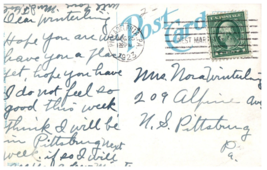 Dear Winterling
Hope you are well
have you a place
yet, hope you have
I do not feel so
good this week
Think I will be
in Pittsburg next
week if so I will
Post Card
1923
Mrs. Nora Winterling
209 Alpine Ave
N. S. Pittsburg
Pa.